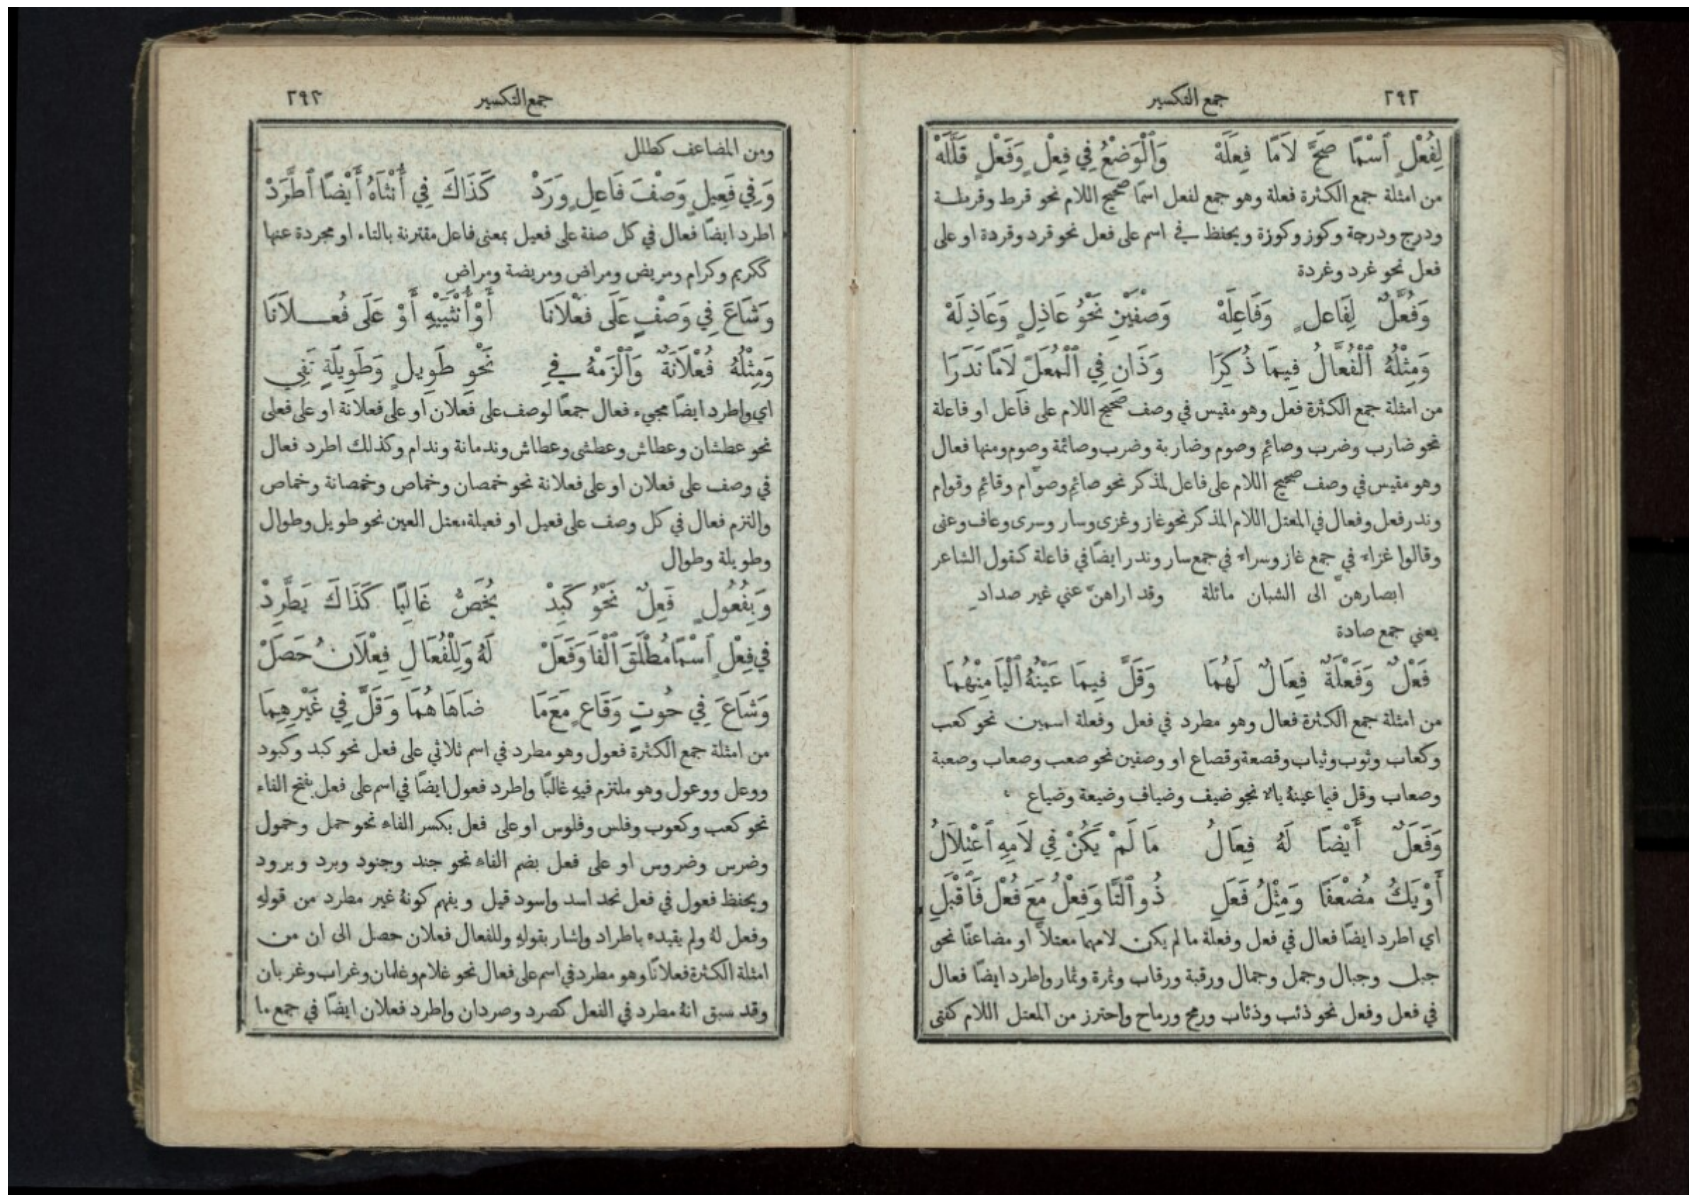 ٢٩٢
جمع التكسير
لِفُعْلٍ ٱسْمًا صَحَّ لَامًا فِعَلَهْ وَٱلْوَضْعُ فِي فِعْلٍ وَفَعْلٍ قَلَّلَهْ
من امثلة جمع الكثرة فعلة وهو جمع لفعل اسمًا صحيح اللام نحو قرط وقرطة
ودرج ودرجة وكوز وكوزة ويحفظ في اسم على فعل نحو قرد وقردة او على
فعل نحو غرد وغردة
وَفُعَّلٌ لِفَاعِلٍ وَفَاعِلَهْ وَصْفَيْنِ نَحْوُ عَاذِلٍ وَعَاذِلَهْ
وَمِثْلُهُ ٱلْفُعَّالُ فِيمَا ذُكِرَا وَذَانِ فِي ٱلْمُعَلِّ لَامًا نَدَرَا
من امثلة جمع الكثرة فعل وهو مقيس في وصف صحيح اللام على فاعل او فاعلة
نحو ضارب وضرب وصائم وصوم وضاربة وضرب وصائمة وصوم ومنها فعال
وهو مقيس في وصف صحيح اللام على فاعل لمذكر نحو صائم وصوّام وقائم وقوام
وندر فعل وفعال في المعتل اللام المذكر نحو غاز وغزى وسار وسرى وعاف وعفى
وقالوا غزاء في جمع غاز وسراء في جمع سار وندر ايضًا في فاعلة كقول الشاعر
ابصارهنّ الى الشبان مائلة وقد اراهنّ عني غير صداد
يعني جمع صادة
فَعْلٌ وَفَعْلَةٌ فِعَالٌ لَهُمَا وَقَلَّ فِيمَا عَيْنُهُ ٱلْيَا مِنْهُمَا
من امثلة جمع الكثرة فعال وهو مطرد في فعل وفعلة اسمين نحو كعب
وكعاب وثوب وثياب وقصعة وقصاع او وصفين نحو صعب وصعاب وصعبة
وصعاب وقل فيما عينهُ يالا نحو ضيف وضياف وضيعة وضياع
وَفَعَلٌ أَيْضًا لَهُ فِعَالُ مَا لَمْ يَكُنْ فِي لَامِهِ ٱعْتِلَالُ
أَوْ يَكُ مُضْعَفًا وَمِثْلُ فَعَلِ ذُو ٱلتَّا وَفِعْلٌ مَعَ فُعْلٍ فَٱقْبَلِ
اي اطرد ايضًا فعال في فعل وفعلة ما لم يكن لامهما معتلًا او مضاعفًا نحو
جبل وجبال وجمل وجمال ورقبة ورقاب وثمرة وثمار واطرد ايضًا فعال
في فعل وفعل نحو ذئب وذئاب ورمح ورماح واحترز من المعتل اللام كفتى
٢٩٣
جمع التكسير
ومن المضاعف كطلل
وَفِي فَعِيلٍ وَصْفَ فَاعِلٍ وَرَدْ كَذَاكَ فِي أُنْثَاهُ أَيْضًا ٱطَّرَدْ
اطرد ايضًا فعال في كل صفة على فعيل بمعنى فاعل مقترنة بالتاء او مجردة عنها
ككريم وكرام ومريض ومراض ومريضة ومراض
وَشَاعَ فِي وَصْفٍ عَلَى فَعْلَانَا أَوْ أُنْثَيَيْهِ أَوْ عَلَى فُعْلَانَا
وَمِثْلُهُ فُعْلَانَةٌ وَٱلْزَمْهُ فِي نَحْوِ طَوِيلٍ وَطَوِيلَةٍ تَفِي
اي واطرد ايضًا مجيء فعال جمعًا لوصف على فعلان او على فعلانة او على فعلى
نحو عطشان وعطاش وعطشى وعطاش وندمانة وندام وكذلك اطرد فعال
في وصف على فعلان او على فعلانة نحو خمصان وخماص وخمصانة وخماص
والتزم فعال في كل وصف على فعيل او فعيلة معتل العين نحو طويل وطوال
وطويلة وطوال
وَبِفُعُولٍ فَعِلٌ نَحْوُ كَبِدْ يُخَصُّ غَالِبًا كَذَاكَ يَطَّرِدْ
فِي فَعْلٍ ٱسْمًا مُطْلَقَ ٱلْفَا وَفَعَلْ لَهُ وَلِلْفُعَالِ فِعْلَانٌ حَصَلْ
وَشَاعَ فِي حُوتٍ وَقَاعٍ مَعَ مَا ضَاهَاهُمَا وَقَلَّ فِي غَيْرِهِمَا
من امثلة جمع الكثرة فعول وهو مطرد في اسم ثلاثي على فعل نحو كبد وكبود
ووعل ووعول وهو ملتزم فيهِ غالبًا واطرد فعول ايضًا في اسم على فعل بفتح الفاء
نحو كعب وكعوب وفلس وفلوس او على فعل بكسر الفاء نحو حمل وحمول
وضرس وضروس او على فعل بضم الفاء نحو جند وجنود وبرد وبرود
ويحفظ فعول في فعل نحد اسد واسود قيل ويفهم كونهُ غير مطرد من قولهِ
وفعل لهُ ولم يقيده باطراد واشار بقولهِ وللفعال فعلان حصل الى ان من
امثلة الكثرة فعلانًا وهو مطرد في اسم على فعال نحو غلام وغلمان وغراب وغربان
وقد سبق انهُ مطرد في الفعل كصرد وصردان واطرد فعلان ايضًا في جمع ما